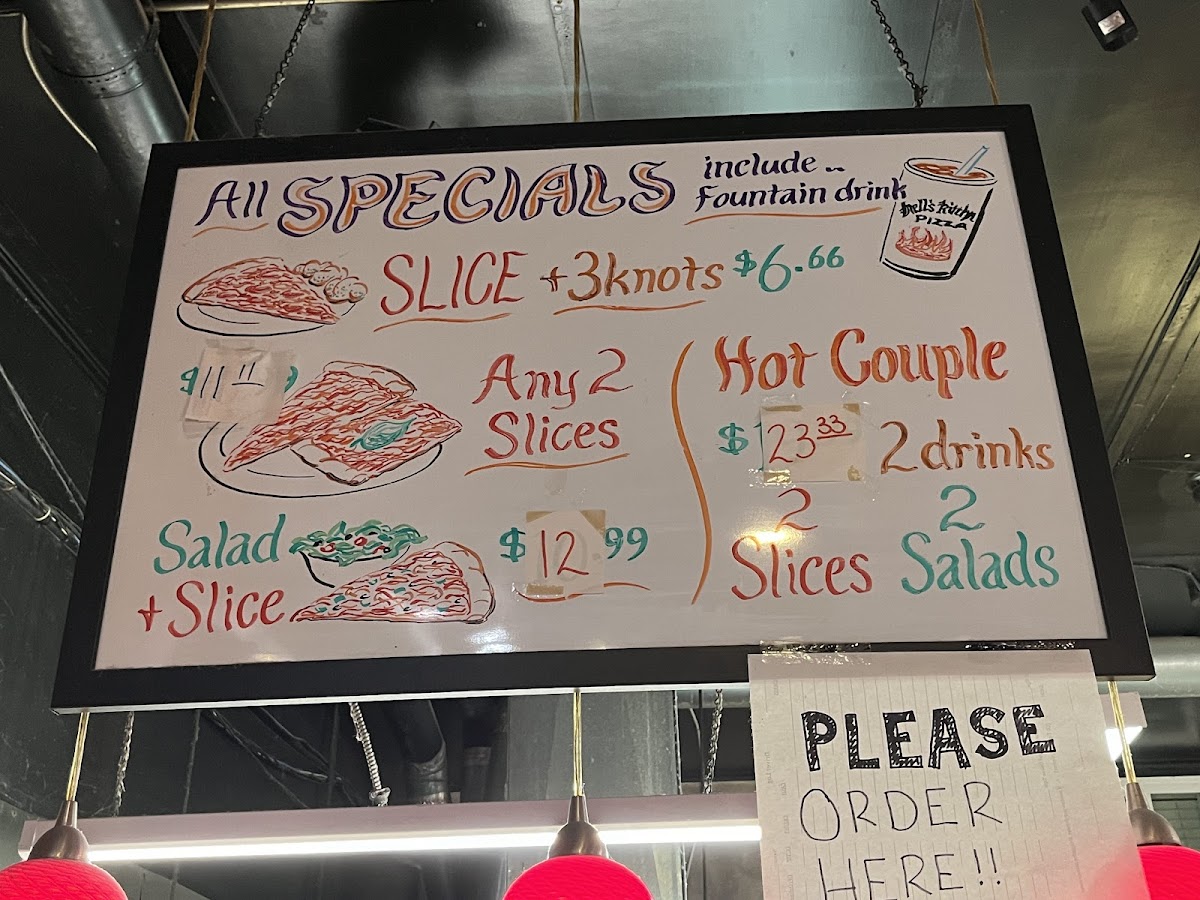 All SPECIALS include..
Fountain drink
Hell's Kitchen
PIZZA
SLICE + 3 knots $6.66
$11.11
Any 2
Slices
Salad
+ Slice
$12.99
Hot Couple
$23.33 2 drinks
2 2
Slices Salads
PLEASE
ORDER
HERE!!